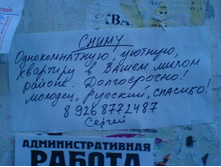 КВА
СНИМУ
Однокомнатную, уютную,
квартиру в Вашем милом
районе. Долгосрочно!
молодец, русский, спасибо!
8 926 8772487
Сергей
АДМИНИСТРАТИВНАЯ
РАБОТА